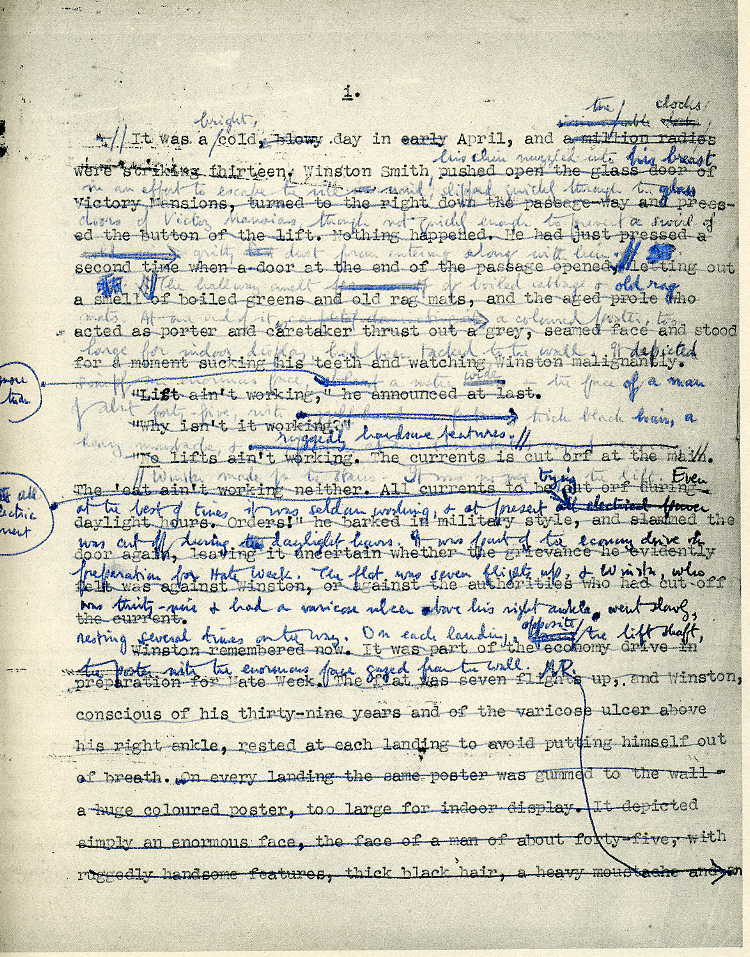 1.
the clocks
bright,
It was a cold, blowy day in early April, and a million radios
his chin nuzzled into his breast
were striking thirteen. Winston Smith pushed open the glass door of
in an effort to escape the vile wind, slipped quickly through the glass
Victory Mansions, turned to the right down the passage-way and press-
doors of Victory Mansions, though not quickly enough to prevent a swirl of
ed the button of the lift. Nothing happened. He had just pressed a
gritty dust from entering along with him.
second time when a door at the end of the passage opened, letting out
The hallway smelt of boiled cabbage & old rag
a smell of boiled greens and old rag mats, and the aged prole who
mats. At one end of it, a coloured poster, too
acted as porter and caretaker thrust out a grey, seamed face and stood
large for indoor display, had been tacked to the wall. It depicted
for a moment sucking his teeth and watching Winston malignantly.
simply an enormous face, more than a metre wide: the face of a man
"Lift ain't working," he announced at last.
of about forty-five, with thick black hair, a
"Why isn't it working?"
heavy moustache & ruggedly handsome features.
"The lifts ain't working. The currents is cut orf at the main.
Winston made for the stairs. It was no use trying the lift. Even
The 'eat ain't working neither. All currents to be cut orf during
at the best of times it was seldom working, & at present all electrical power
all electric
daylight hours. Orders!" he barked in military style, and slammed the
was cut off during daylight hours. It was part of the economy drive in
door again, leaving it uncertain whether the grievance he evidently
preparation for Hate Week. The flat was seven flights up, & Winston, who
felt was against Winston, or against the authorities who had cut off
was thirty-nine & had a varicose ulcer above his right ankle, went slowly,
the current.
resting several times on the way. On each landing, opposite the lift shaft,
Winston remembered now. It was part of the economy drive in
the poster with the enormous face gazed from the wall.
preparation for Hate Week. The flat was seven flights up, and Winston,
conscious of his thirty-nine years and of the varicose ulcer above
his right ankle, rested at each landing to avoid putting himself out
of breath. On every landing the same poster was gummed to the wall -
a huge coloured poster, too large for indoor display. It depicted
simply an enormous face, the face of a man of about forty-five, with
ruggedly handsome features, thick black hair, a heavy moustache and an